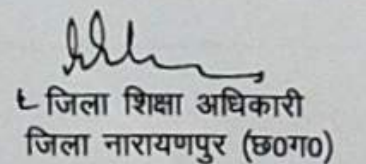 जिला शिक्षा अधिकारी
जिला नारायणपुर (छ0ग0)